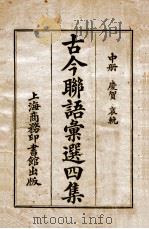 中册 慶賀 哀輓
古今聯語彙選四集
上海商務印書館出版
www.toutuwang.com